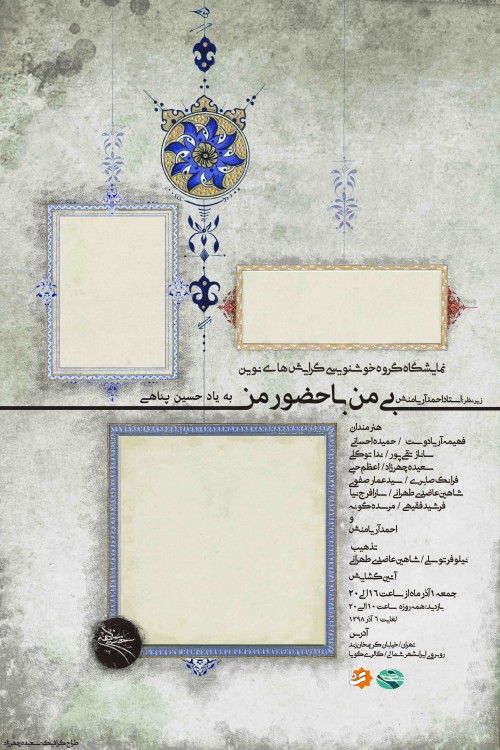 نمایشگاه گروه خوشنویسی گرایش های نوین
زیر نظر: استاد احمد آریامنش
بی من با حضور من
به یاد حسین پناهی
هنرمندان
فهیمه آریادوست / حمیده احسانی
ساناز تقی پور / ندا توکلی
سعیده چهرزاد / اعظم حبی
فرانک صابری / سید عمار صفویی
شاهین عاضدی طهرانی / سارا فرج نیا
فرشید فقیهی / مرسده گونه
و
احمد آریامنش
تذهیب
نیلوفر توسلی / شاهین عاضدی طهرانی
آئین گشایش
جمعه ۱ آذر ماه از ساعت ۱۶ الی ۲۰
بازدید: همه روزه ساعت ۱۰ الی ۲۰
لغایت ۶ آذر ۱۳۹۸
آدرس
تهران / خیابان کریمخان زند
روبروی ایرانشهر شمالی / گالری گویا
طراح گرافیک: سعیده چهرزاد